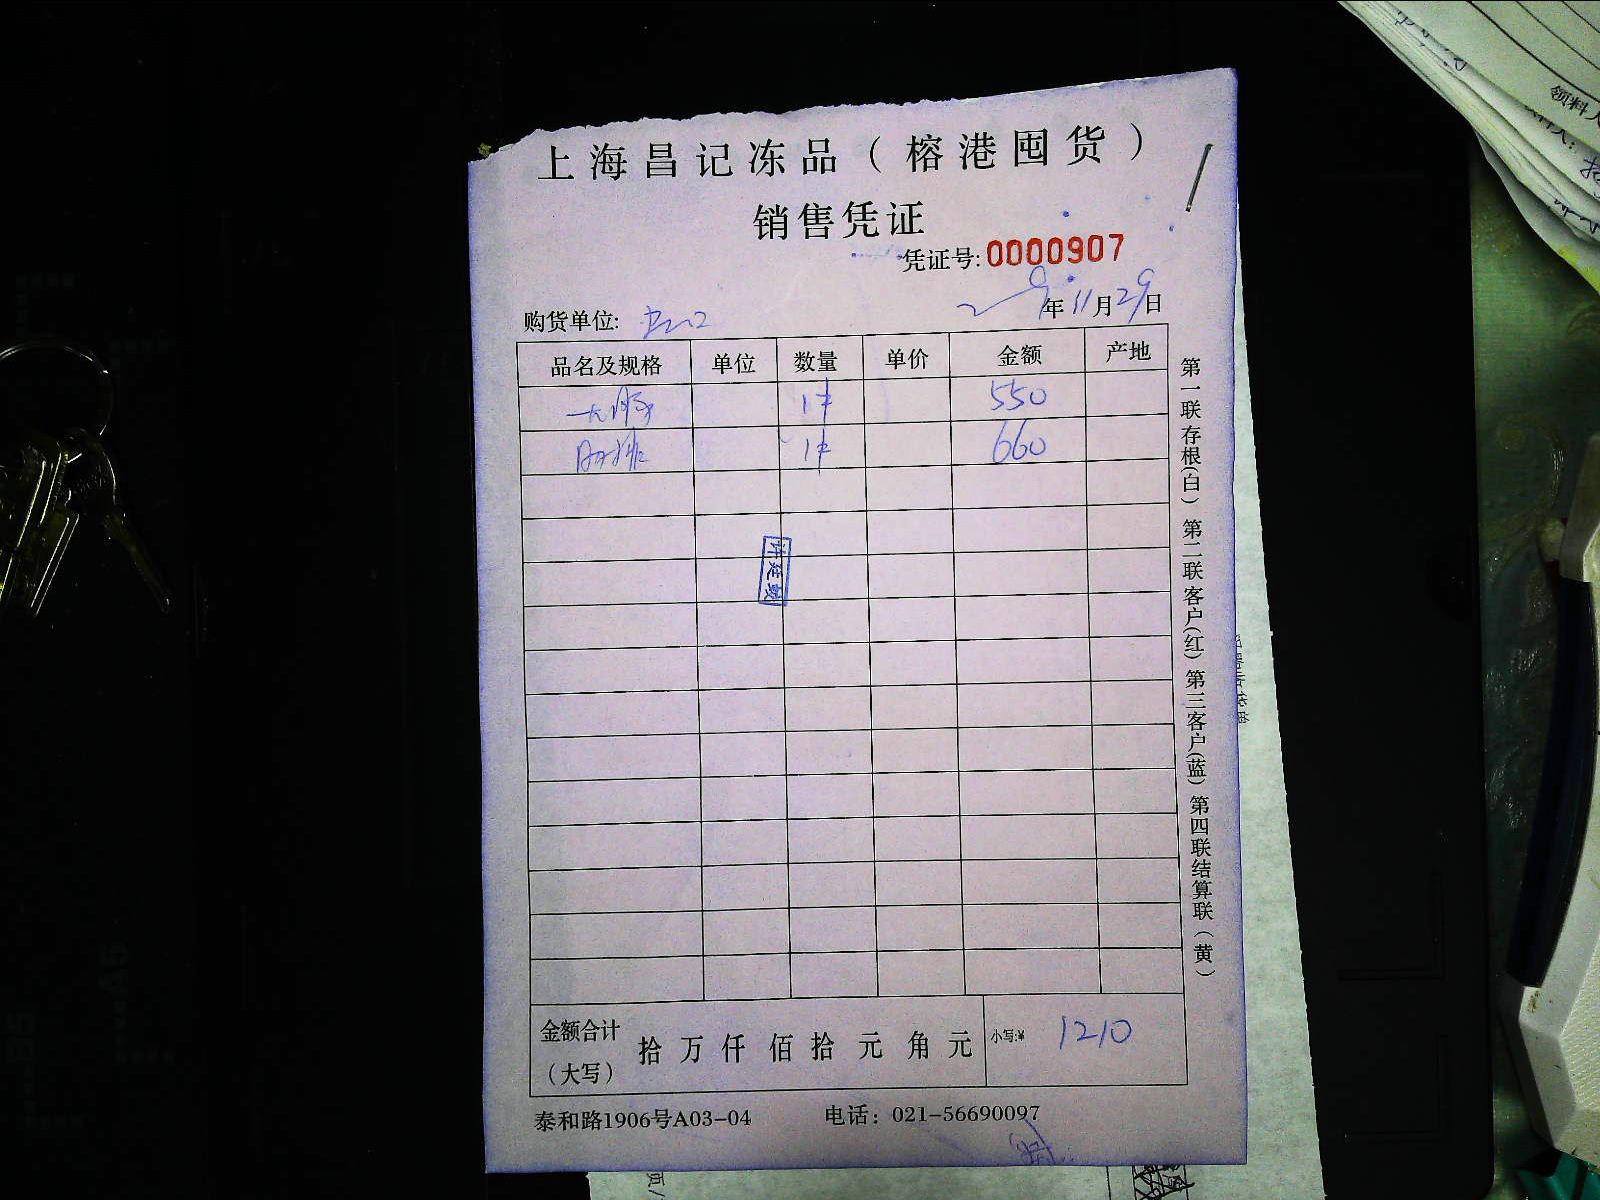 上海昌记冻品（榕港囤货）
销售凭证
凭证号:0000907
年11月29日
购货单位:
品名及规格 单位 数量 单价 金额 产地
1件 550
1件 660
许廷敏
金额合计（大写） 拾 万 仟 佰 拾 元 角 元 小写:¥ 1210
泰和路1906号A03-04 电话：021-56690097
第一联存根(白) 第二联客户(红) 第三客户(蓝) 第四联结算联(黄)
领料人